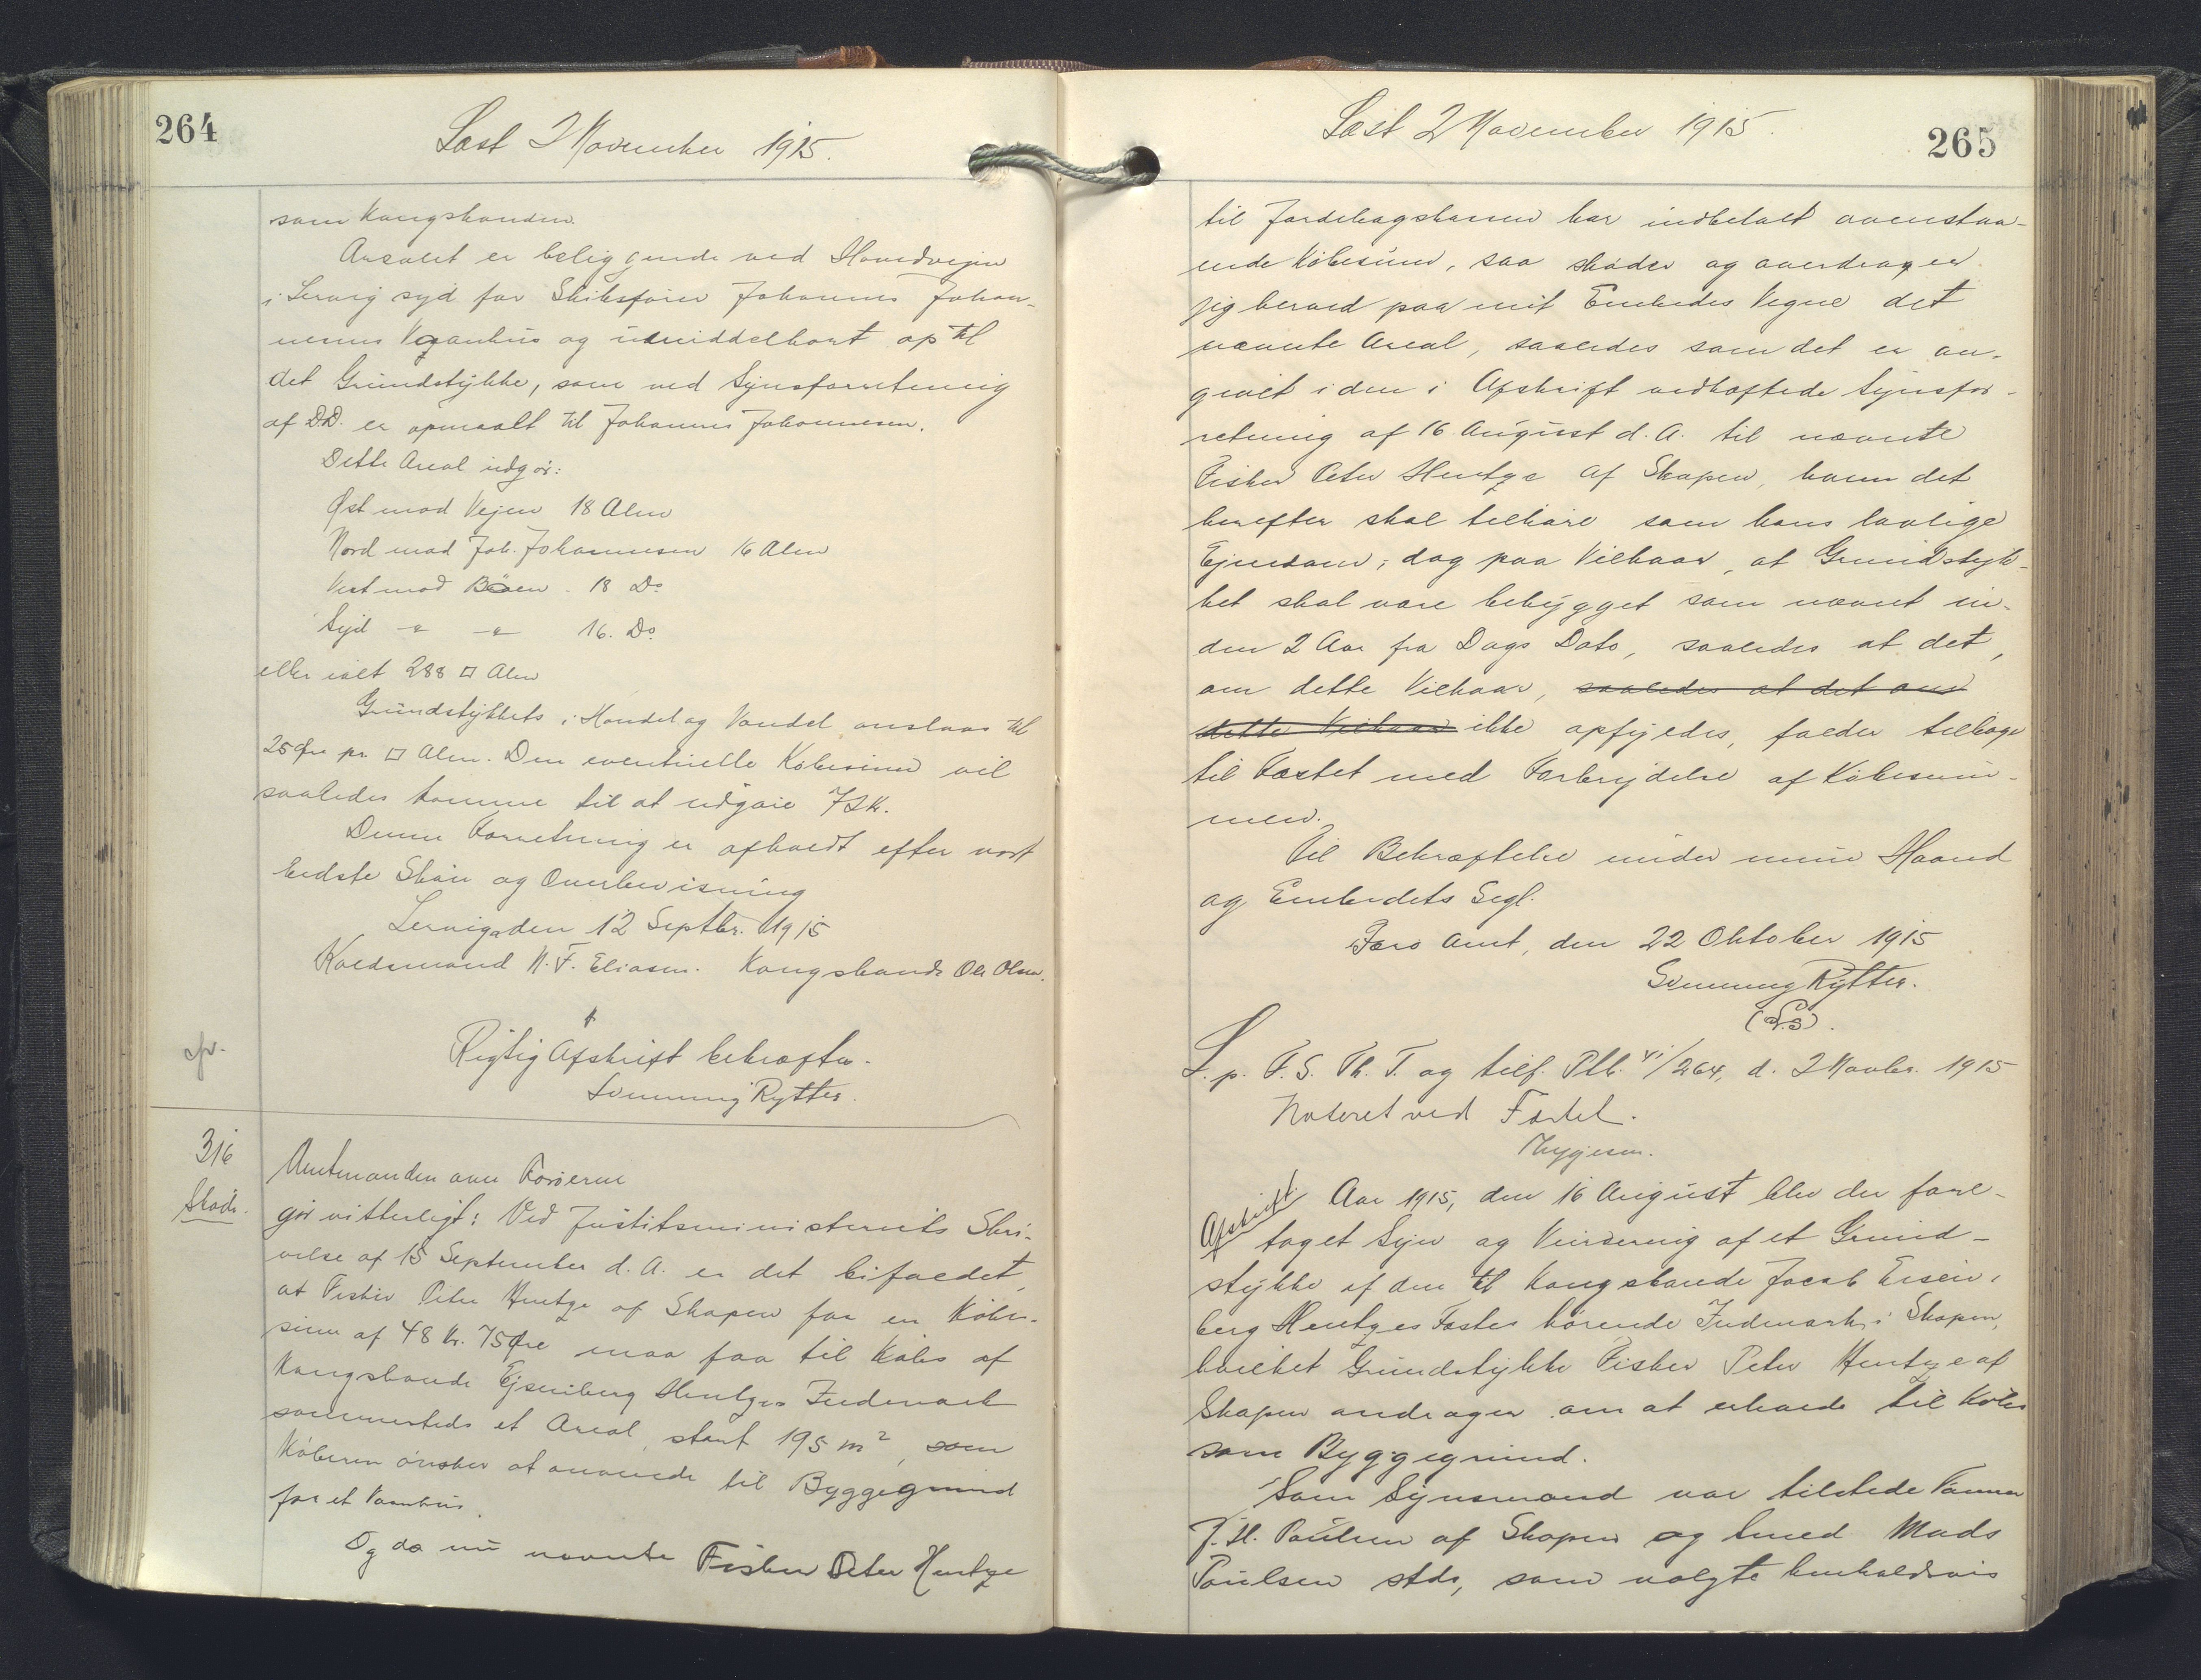 264
Læst 2 November 1915.
som Kongsbonden.
Arealet er beliggende ved Hovedvejen
i Lervig syd for Skibsfører Johannes Johan-
nesens Vaanhus og umiddelbart op til
det Grundstykke, som ved Synsforretning
af D.D. er opmaalt til Johannes Johannesen.
Dette Areal udgør:
Øst mod Vejen 18 Alen
Nord mod Joh. Johannesen 16 Alen
Vest mod Bøen - 18 Do
Syd - " - " 16. Do
eller ialt 288 □ Alen
Grundstykkets i Handel og Vandel anslaas til
25 Øre pr. □ Alen. Den eventuelle Købesum vil
saaledes komme til at udgøre 72 Kr.
Denne Forretning er afholdt efter vort
bedste Skøn og Overbevisning
Lervig den 12 Septbr. 1915
Koldsmand N. F. Eliasen. Kongsbonde Ole Olsen.
Rigtig Afskrift bekræfter.
Svenning Rytter.
316
Skøde.
Amtmanden over Færøerne
gør vitterligt: Ved Justitsministeriets Skri-
velse af 15 September d. A. er det bifaldet,
at Fisker Peter Hentze af Skopen for en Købe-
sum af 48 Kr. 75 Øre maa faa til Købs af
Kongsbonde Ejsenberg Hentzes Indmark
sammesteds et Areal, stort 195 m², som
Køberen ønsker at anvende til Byggegrund
for et Vaanhus.
Og da nu nævnte Fisker Peter Hentze
Læst 2 November 1915.
265
til Jordebogskassen har indbetalt ovenstaa-
ende Købesum, saa skøder og overdrager
jeg herved paa mit Embedes Vegne det
nævnte Areal, saaledes som det er an-
givet i den i Afskrift vedhæftede Synsfor-
retning af 16 August d. A. til nævnte
Fisker Peter Hentze af Skopen, hvem det
herefter skal tilhøre som hans lovlige
Ejendom; dog paa Vilkaar, at Grundstyk-
ket skal være bebygget som nævnt in-
den 2 Aar fra Dags Dato, saaledes at det,
om dette Vilkaar, saaledes at det om
dette Vilkaar ikke opfyldes, falder tilbage
til Fæstet med Forbrydelse af Købesum-
men.
Til Bekræftelse under min Haand
og Embedets Segl.
Færø Amt, den 22 Oktober 1915
Svenning Rytter.
(L.S.).
L. p. F. S. Th. T. og tilf. Ptb. VI/264, d. 2 Novbr. 1915
Noteret ved Fæstet.
Afskrift. Aar 1915, den 16 August blev der fore-
taget Syn og Vurdering af et Grund-
stykke af den til Kongsbonde Jacob Eisen-
berg Hentzes Fæste hørende Indmark i Skopen,
hvilket Grundstykke Fisker Peter Hentze af
Skopen andrager om at erholde til Købs
som Byggegrund.
Som Synsmænd var tilstede Tømrer
J. H. Poulsen af Skopen og Smed Mads
Poulsen stds, som valgte henholdsvis